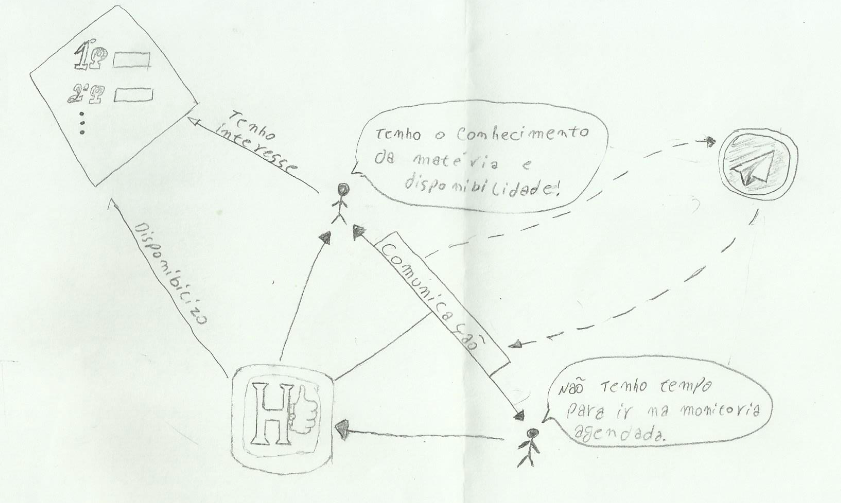 1º
2º
Tenho
interesse
Tenho o conhecimento
da matéria e
disponibilidade!
Disponibilizo
comunicação
H
Não tenho tempo
para ir na monitoria
agendada.